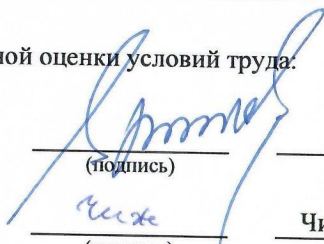 ной оценки условий труда:
(подпись)
чиж
Чи